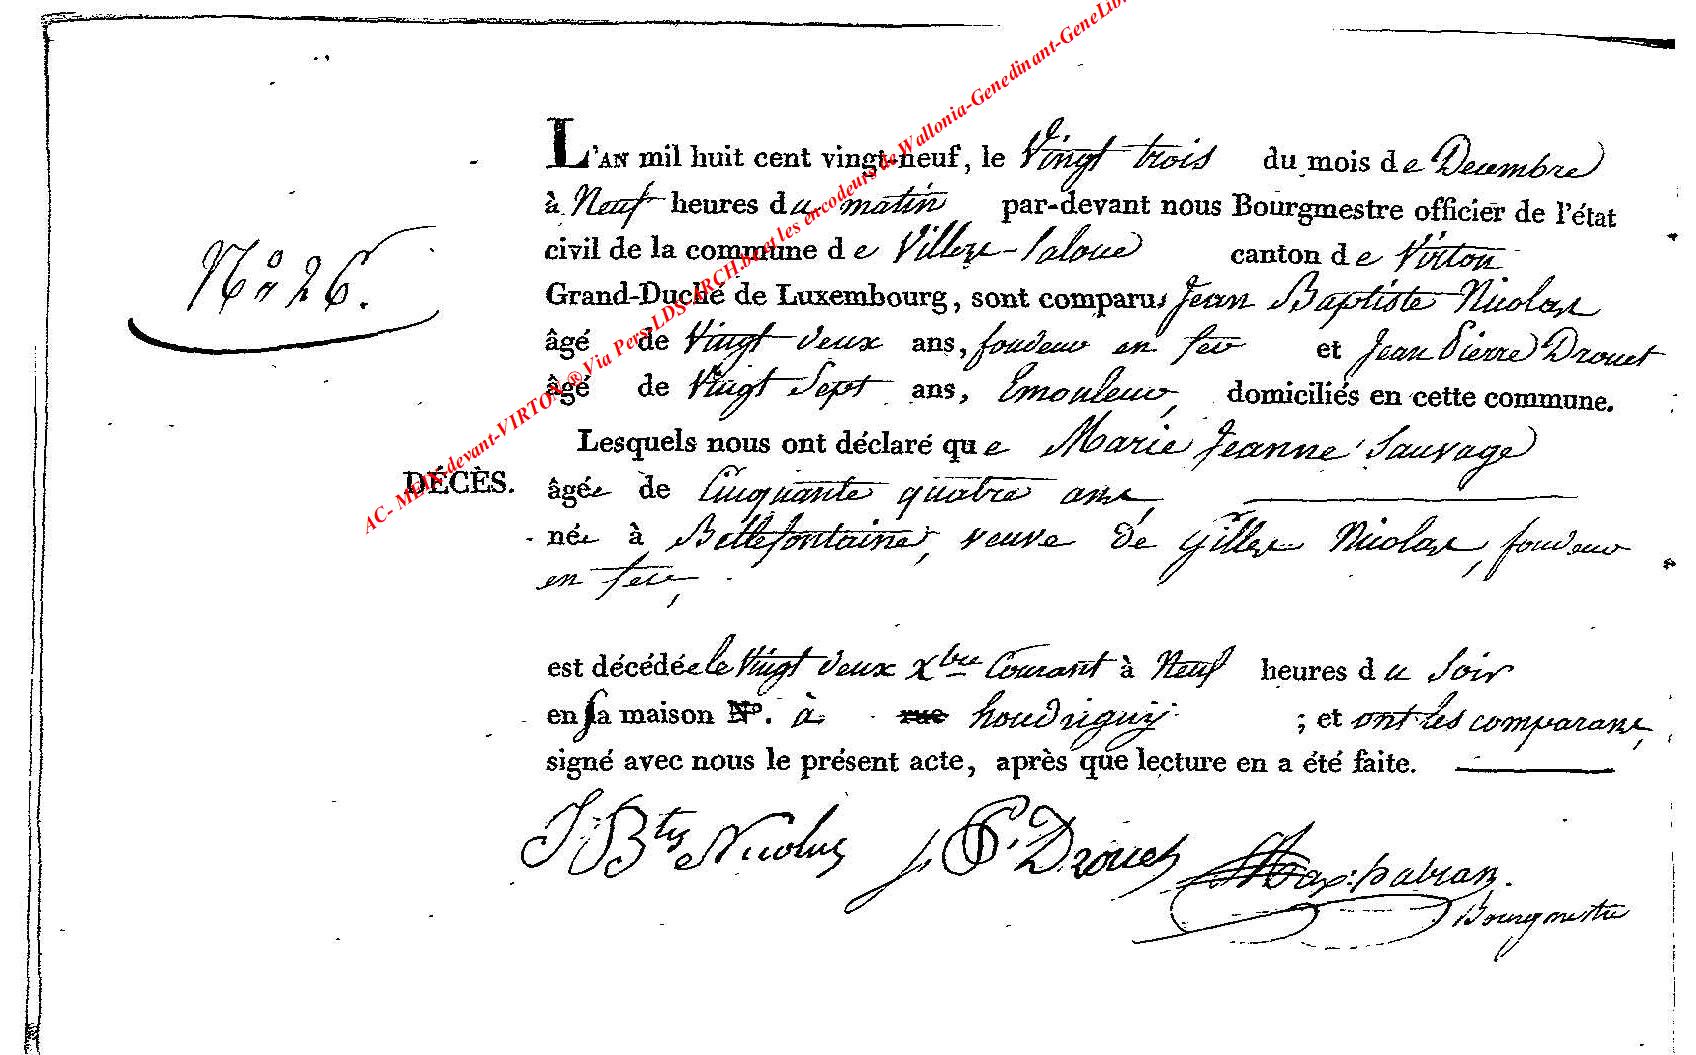 L'AN mil huit cent vingt-neuf, le Vingt trois du mois de Decembre
à Neuf heures du matin par-devant nous Bourgmestre officier de l'état
civil de la commune de Villers-Laloue canton de Virton
N° 26.
Grand-Duché de Luxembourg, sont comparus Jean Baptiste Nicolas
âgé de Vingt deux ans, fondeur en fer et Jean Pierre Drouet
âgé de Vingt Sept ans, Emouleur, domiciliés en cette commune.
Lesquels nous ont déclaré que Marie Jeanne Sauvage
DÉCÈS.
âgée de Cinquante quatre ans,
née à Bellefontaine, veuve de Gilles Nicolas, fondeur
en fer,
est décédée le Vingt deux Xbre Courant à Neuf heures du Soir
en sa maison N°. à rue houdrigny ; et ont les comparans,
signé avec nous le présent acte, après que lecture en a été faite.
J Bte Nicolas J. P. Drouet
Bourgmestre
AC- MEIX-devant-VIRTON ® Via Pers-LDS-ARCH.be et les encodeurs de Wallonia-Genedinant-GeneLib